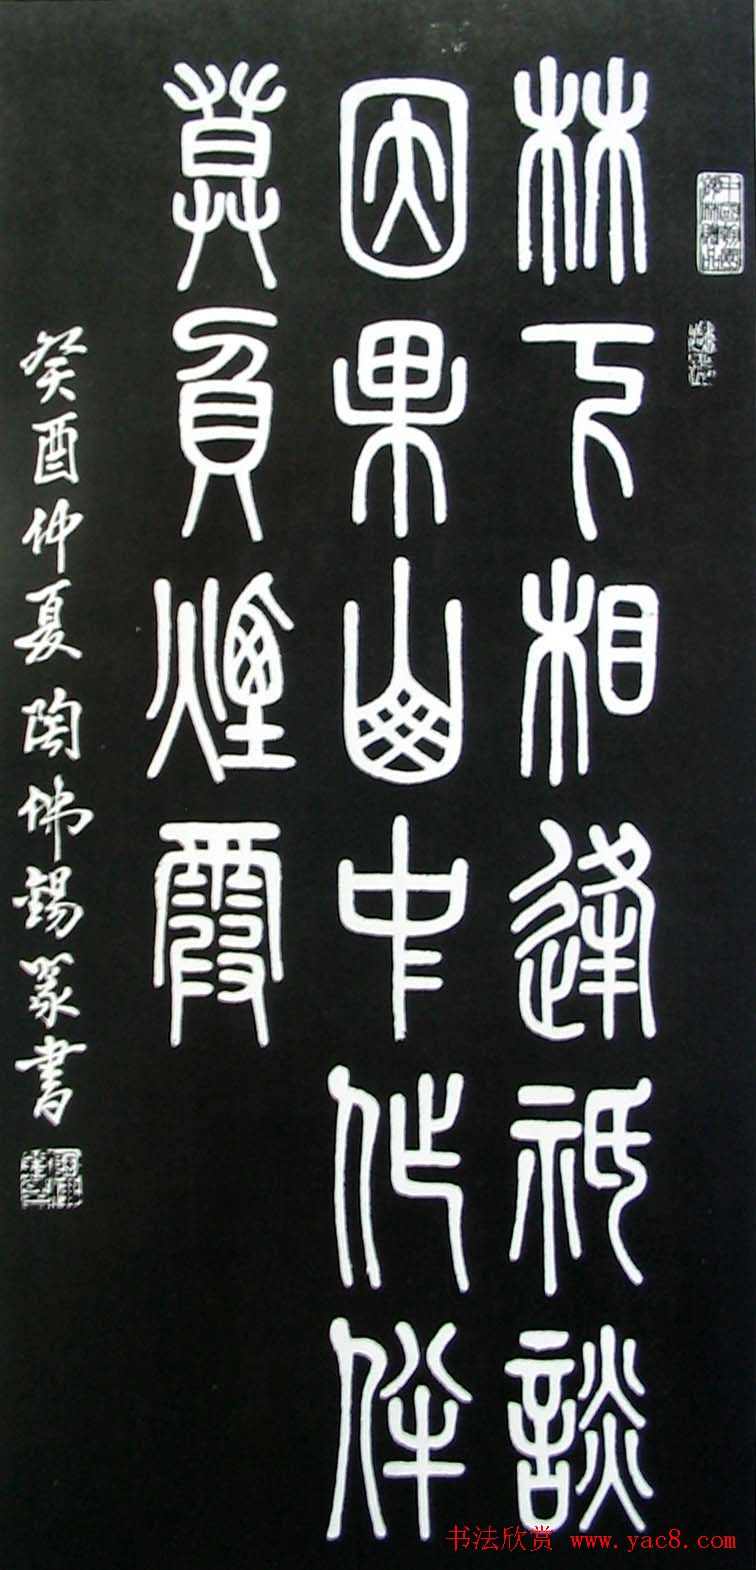 林下相逢祇談
因果山中作伴
莫負煙霞
癸酉仲夏陶佛錫篆書
书法欣赏 www.yac8.com